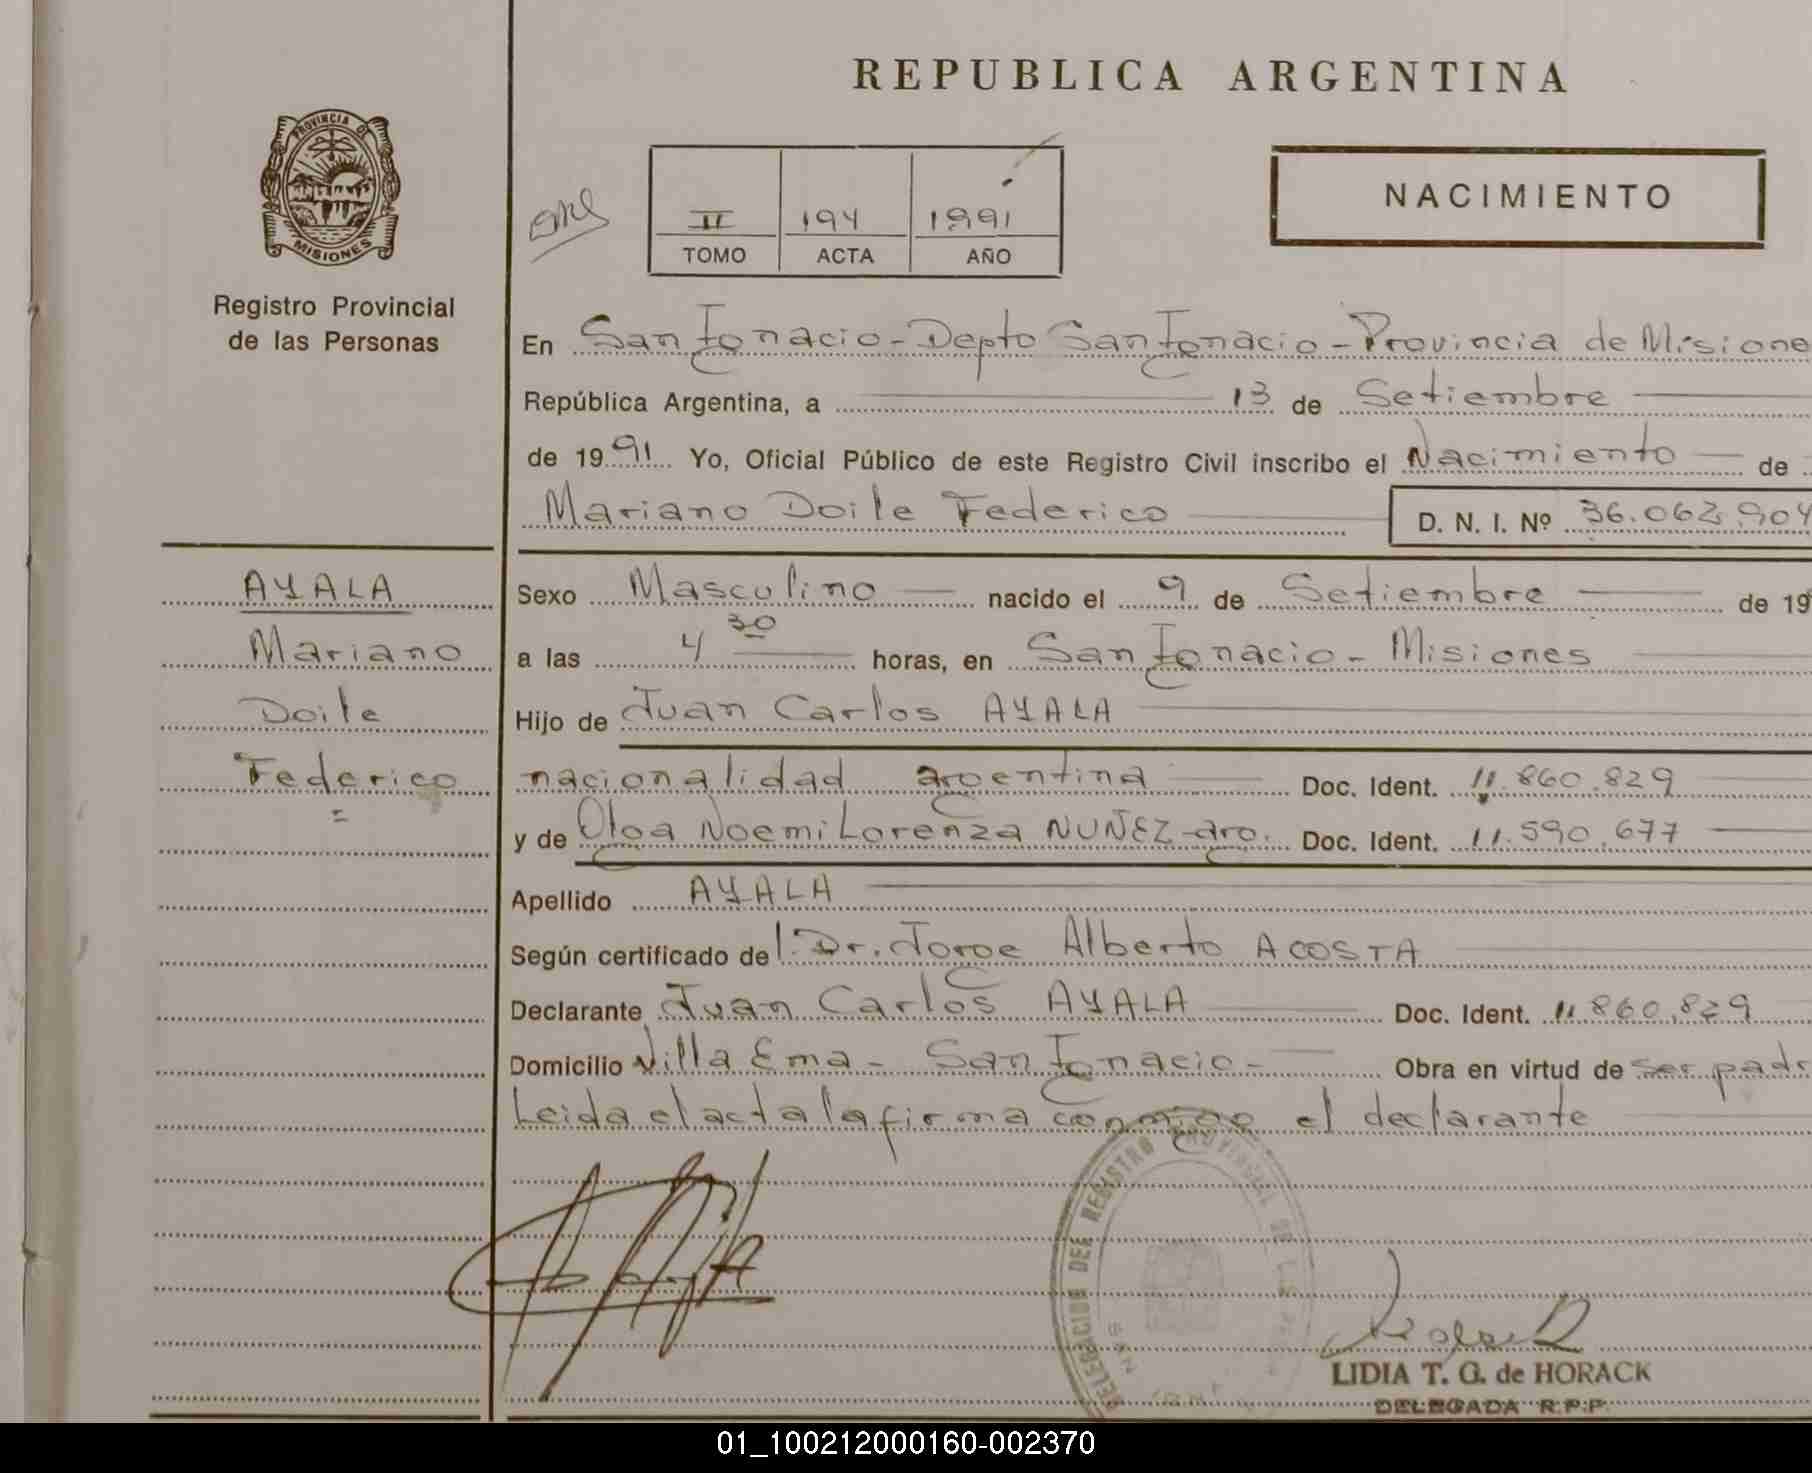 REPUBLICA ARGENTINA
PROVINCIA DE
MISIONES
Registro Provincial
de las Personas
NACIMIENTO
II 194 1991
TOMO ACTA AÑO
En San Ignacio - Depto San Ignacio - Provincia de Misione
República Argentina, a 13 de Setiembre
de 1991 Yo, Oficial Público de este Registro Civil inscribo el Nacimiento de
Mariano Doile Federico D. N. I. Nº 36.062.904
AYALA
Mariano
Doile
Federico
Sexo Masculino nacido el 9 de Setiembre de 19
a las 4 30 horas, en San Ignacio - Misiones
Hijo de Juan Carlos AYALA
nacionalidad argentina Doc. Ident. 11.860.829
y de Olga Noemi Lorenza NUÑEZ - arg. Doc. Ident. 11.590.677
Apellido AYALA
Según certificado de l. Dr. Jorge Alberto ACOSTA
Declarante Juan Carlos AYALA Doc. Ident. 11.860.829
Domicilio Villa Ema - San Ignacio - Obra en virtud de ser padr
Leida el acta la firma conmigo el declarante
DELEGACION DEL REGISTRO PROVINCIAL DE LAS
LIDIA T. G. de HORACK
DELEGADA R.P.P.
01_100212000160-002370